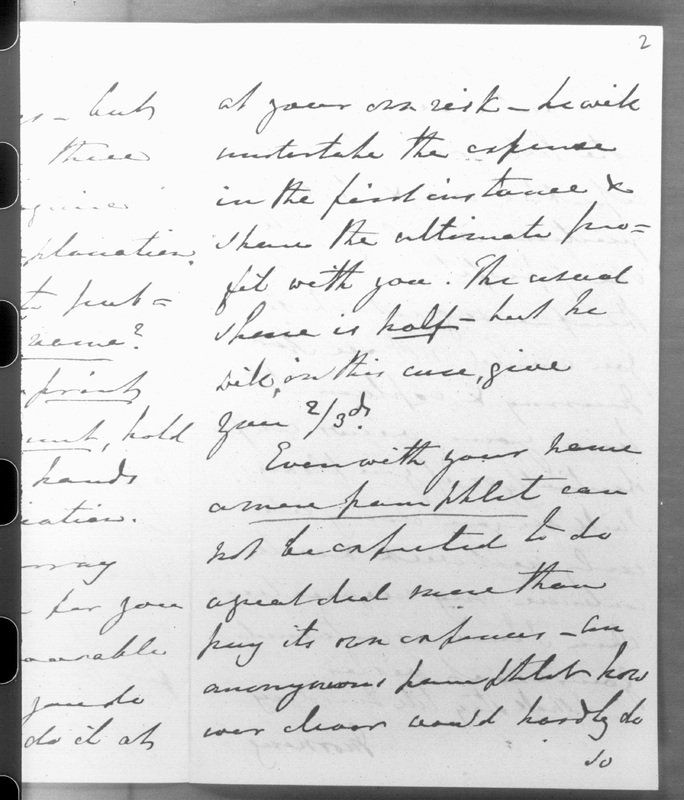 2
s - but
three
planation.
to pub=
name?
print
hold
hands
for you
you do
do it at
at your own risk - he will
undertake the expense
in the first instance &
share the ultimate pro=
fit with you. The usual
share is half - but he
will, in this case, give
you 2/3ds.
Even with your name
a mere pamphlet can
not be expected to do
a great deal more than
pay its own expenses - an
anonymous pamphlet how
ever clever would hardly do
so